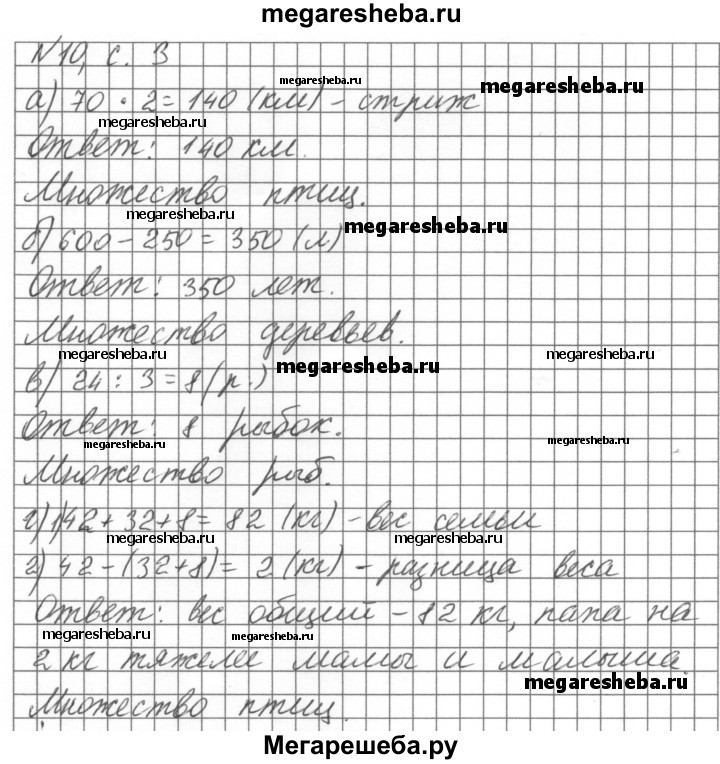 megaresheba.ru
№10, с. 3
megaresheba.ru
megaresheba.ru
а) 70 · 2 = 140 (км) - стриж
megaresheba.ru
Ответ: 140 км.
Множество птиц.
megaresheba.ru
megaresheba.ru
б) 600 - 250 = 350 (л)
Ответ: 350 лет.
Множество деревьев.
megaresheba.ru
megaresheba.ru
megaresheba.ru
в) 24 : 3 = 8 (р.)
Ответ: 8 рыбок.
megaresheba.ru
megaresheba.ru
Множество рыб.
г) 1) 42 + 32 + 8 = 82 (кг) - вес семьи
megaresheba.ru
megaresheba.ru
2) 42 - (32 + 8) = 2 (кг) - разница веса
Ответ: вес общий - 82 кг, папа на
megaresheba.ru
megaresheba.ru
2 кг тяжелее мамы и малыша.
megaresheba.ru
Множество птиц.
Мегарешеба.ру